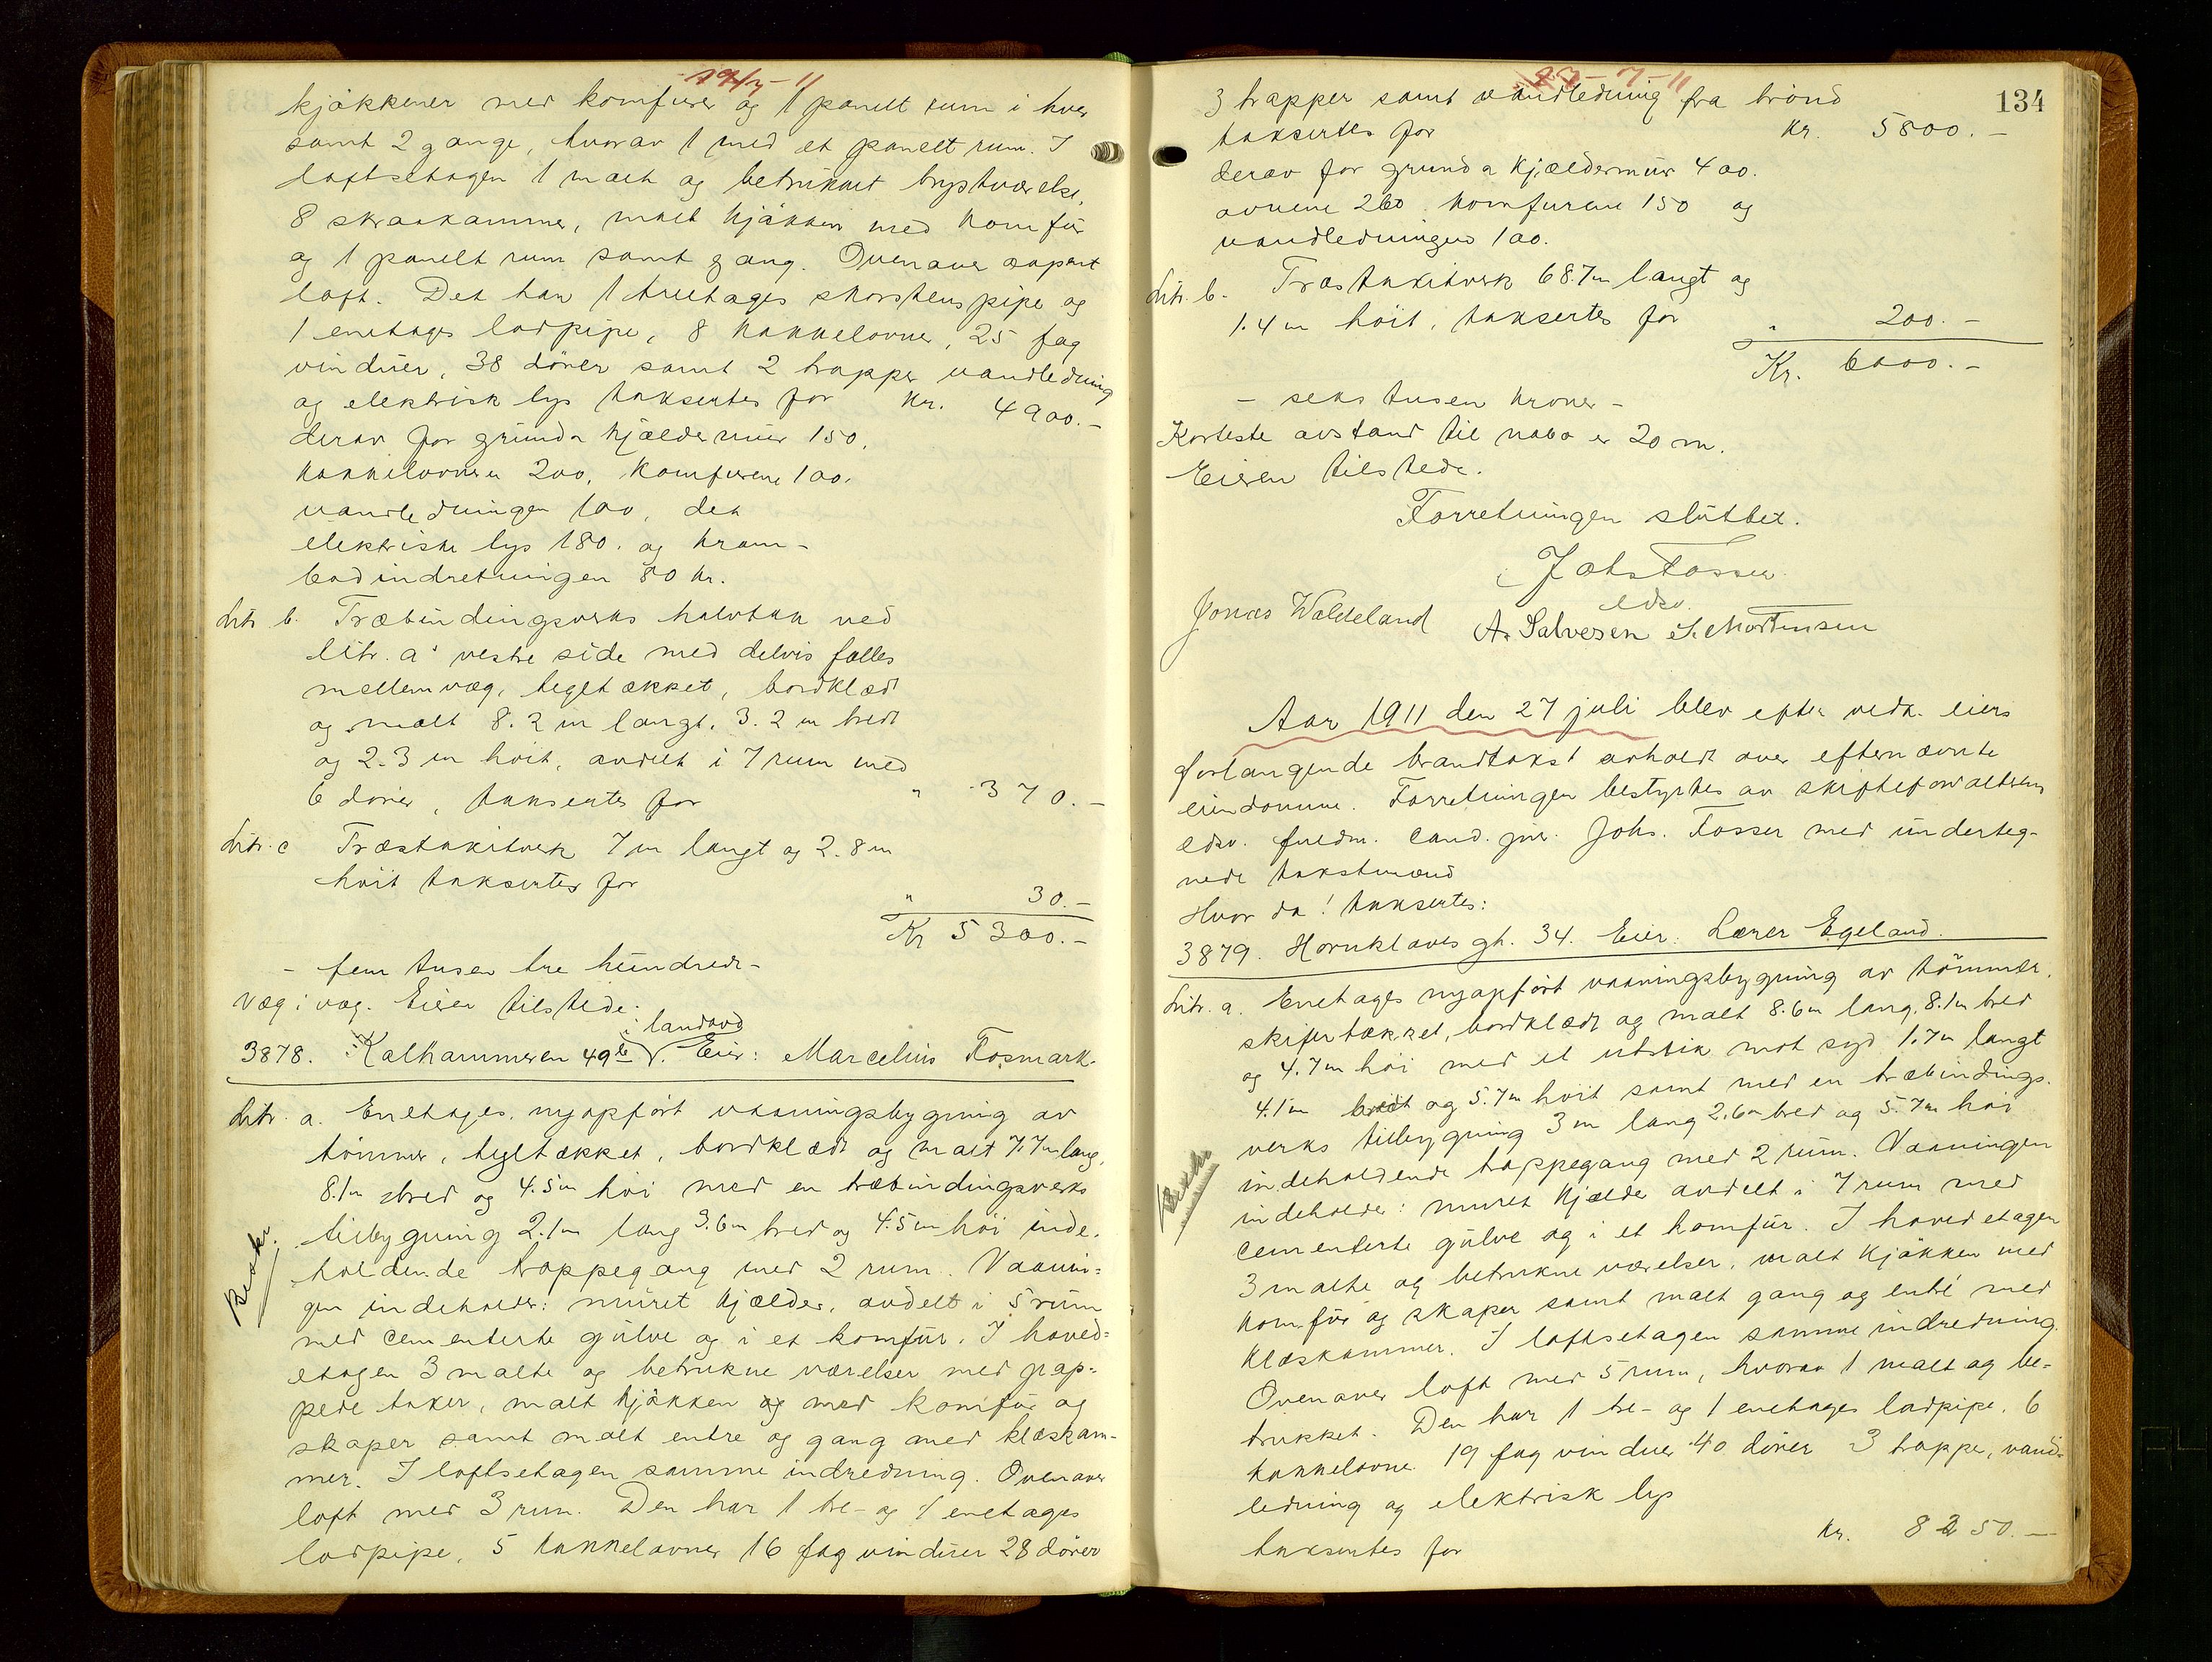 19/7-11
kjøkkener med komfurer og 1 panelt rum i hver
samt 2 gange, hvorav 1 med et panelt rum. I
loftsetagen 1 malt og betrukket kvistværelse,
8 skraakammer, malt kjøkken med komfur
og 1 panelt rum samt gang. Ovenover aapent
loft. Det har 1 treetages skorstenspipe og
1 enetages lodpipe, 8 kakkelovner, 25 fag
vinduer, 38 dører samt 2 trapper vandledning
og elektrisk lys taksertes for Kr. 4900.-
derav for grund & kjældermur 150,
kakkelovnene 200, komfurene 100.
vandledningen 100, det
elektriske lys 180. og kram-
bodindretningen 80 kr.
Litr. b. Træbindingsverks halvtak ved
litr. a's vestre side med delvis fælles
mellemvæg, tegltækket, bordklædt
og malt 8.2 m langt, 3.2 m bredt
og 2.3 m høit, avdelt i 7 rum med
6 dører, taksertes for " 370.-
Litr. c Træstakitverk 7 m langt og 2.8 m
høit taksertes for
" 30.-
Kr 5300.-
- fem tusen tre hundrede -
Væg i væg. Eieren tilstede.
i landavd
3878. Kalhammeren 49 b. Eier: Marcelius Fosmark.
Litr. a. Enetages, nyopført vaaningsbygning av
tømmer, tegltækket, bordklædt og malt 7.7 m lang,
8.1 m bred og 4.5 m høi med en træbindingsverks
tilbygning 2.1 m lang 3.6 m bred og 4.5 m høi inde-
holdende trappegang med 2 rum. Vaanin-
gen indeholder: muret kjælder, avdelt i 5 rum
Beskr.
med cementerte gulve og i et komfur. I hoved-
etagen 3 malte og betrukne værelser med pap-
pede taker, malt kjøkken og med komfur og
skaper samt malt entre og gang med klæskam-
mer. I loftsetagen samme indredning. Ovenover
loft med 3 rum. Den har 1 tre- og 1 enetages
lodpipe, 5 kakkelovner 16 fag vinduer 28 dører
27-7-11
134
3 trapper samt vandledning fra brønd
taksertes for Kr. 5800.-
derav for grund & kjældermur 400.
ovnene 260 komfurene 150 og
vandledningen 100.
Litr. b. Træstakitverk 68.7 m langt og
1.4 m høit, taksertes for " 200.-
Kr. 6000.-
- seks tusen kroner -
Korteste avstand til nabo er 20 m.
Eieren tilstede.
Forretningen sluttet.
Johs Fosser
edsv.
Jonas Waldeland A. Salvesen S. Mortensen
Aar 1911 den 27 juli blev efter vedk. eiers
forlangende brandtakst avholdt over efternævnte
eiendomme. Forretningen bestyrtes av skifteforvalterens
edsv. fuldm. cand. jur. Johs. Fosser med underteg-
nede takstmænd
Hvor da! taksertes:
3879. Hornklaves gt. 34. Eier: Lærer Egeland.
Litr. a. Enetages nyopført vaaningsbygning av tømmer,
skifertækket, bordklædt og malt 8.6 m lang, 8.1 m bred
og 4.7 m høi med et utstik mot syd 1.7 m langt
4.1 m bredt og 5.7 m høit samt med en træbindings-
verks tilbygning 3 m lang 2.6 m bred og 5.7 m høi
Beskr
indeholdende trappegang med 2 rum. Vaaningen
indeholder: muret kjælder avdelt i 7 rum med
cementerte gulve og i et komfur. I hovedetagen
3 malte og betrukne værelser, malt kjøkken med
komfur og skaper samt malt gang og entré med
klæskammer. I loftsetagen samme indredning.
Ovenover loft med 5 rum, hvorav 1 malt og be-
trukket. Den har 1 tre- og 1 enetages lodpipe, 6
kakkelovne 19 fag vinduer 40 dører 3 trapper, vand-
ledning og elektrisk lys
taksertes for Kr. 8250.-